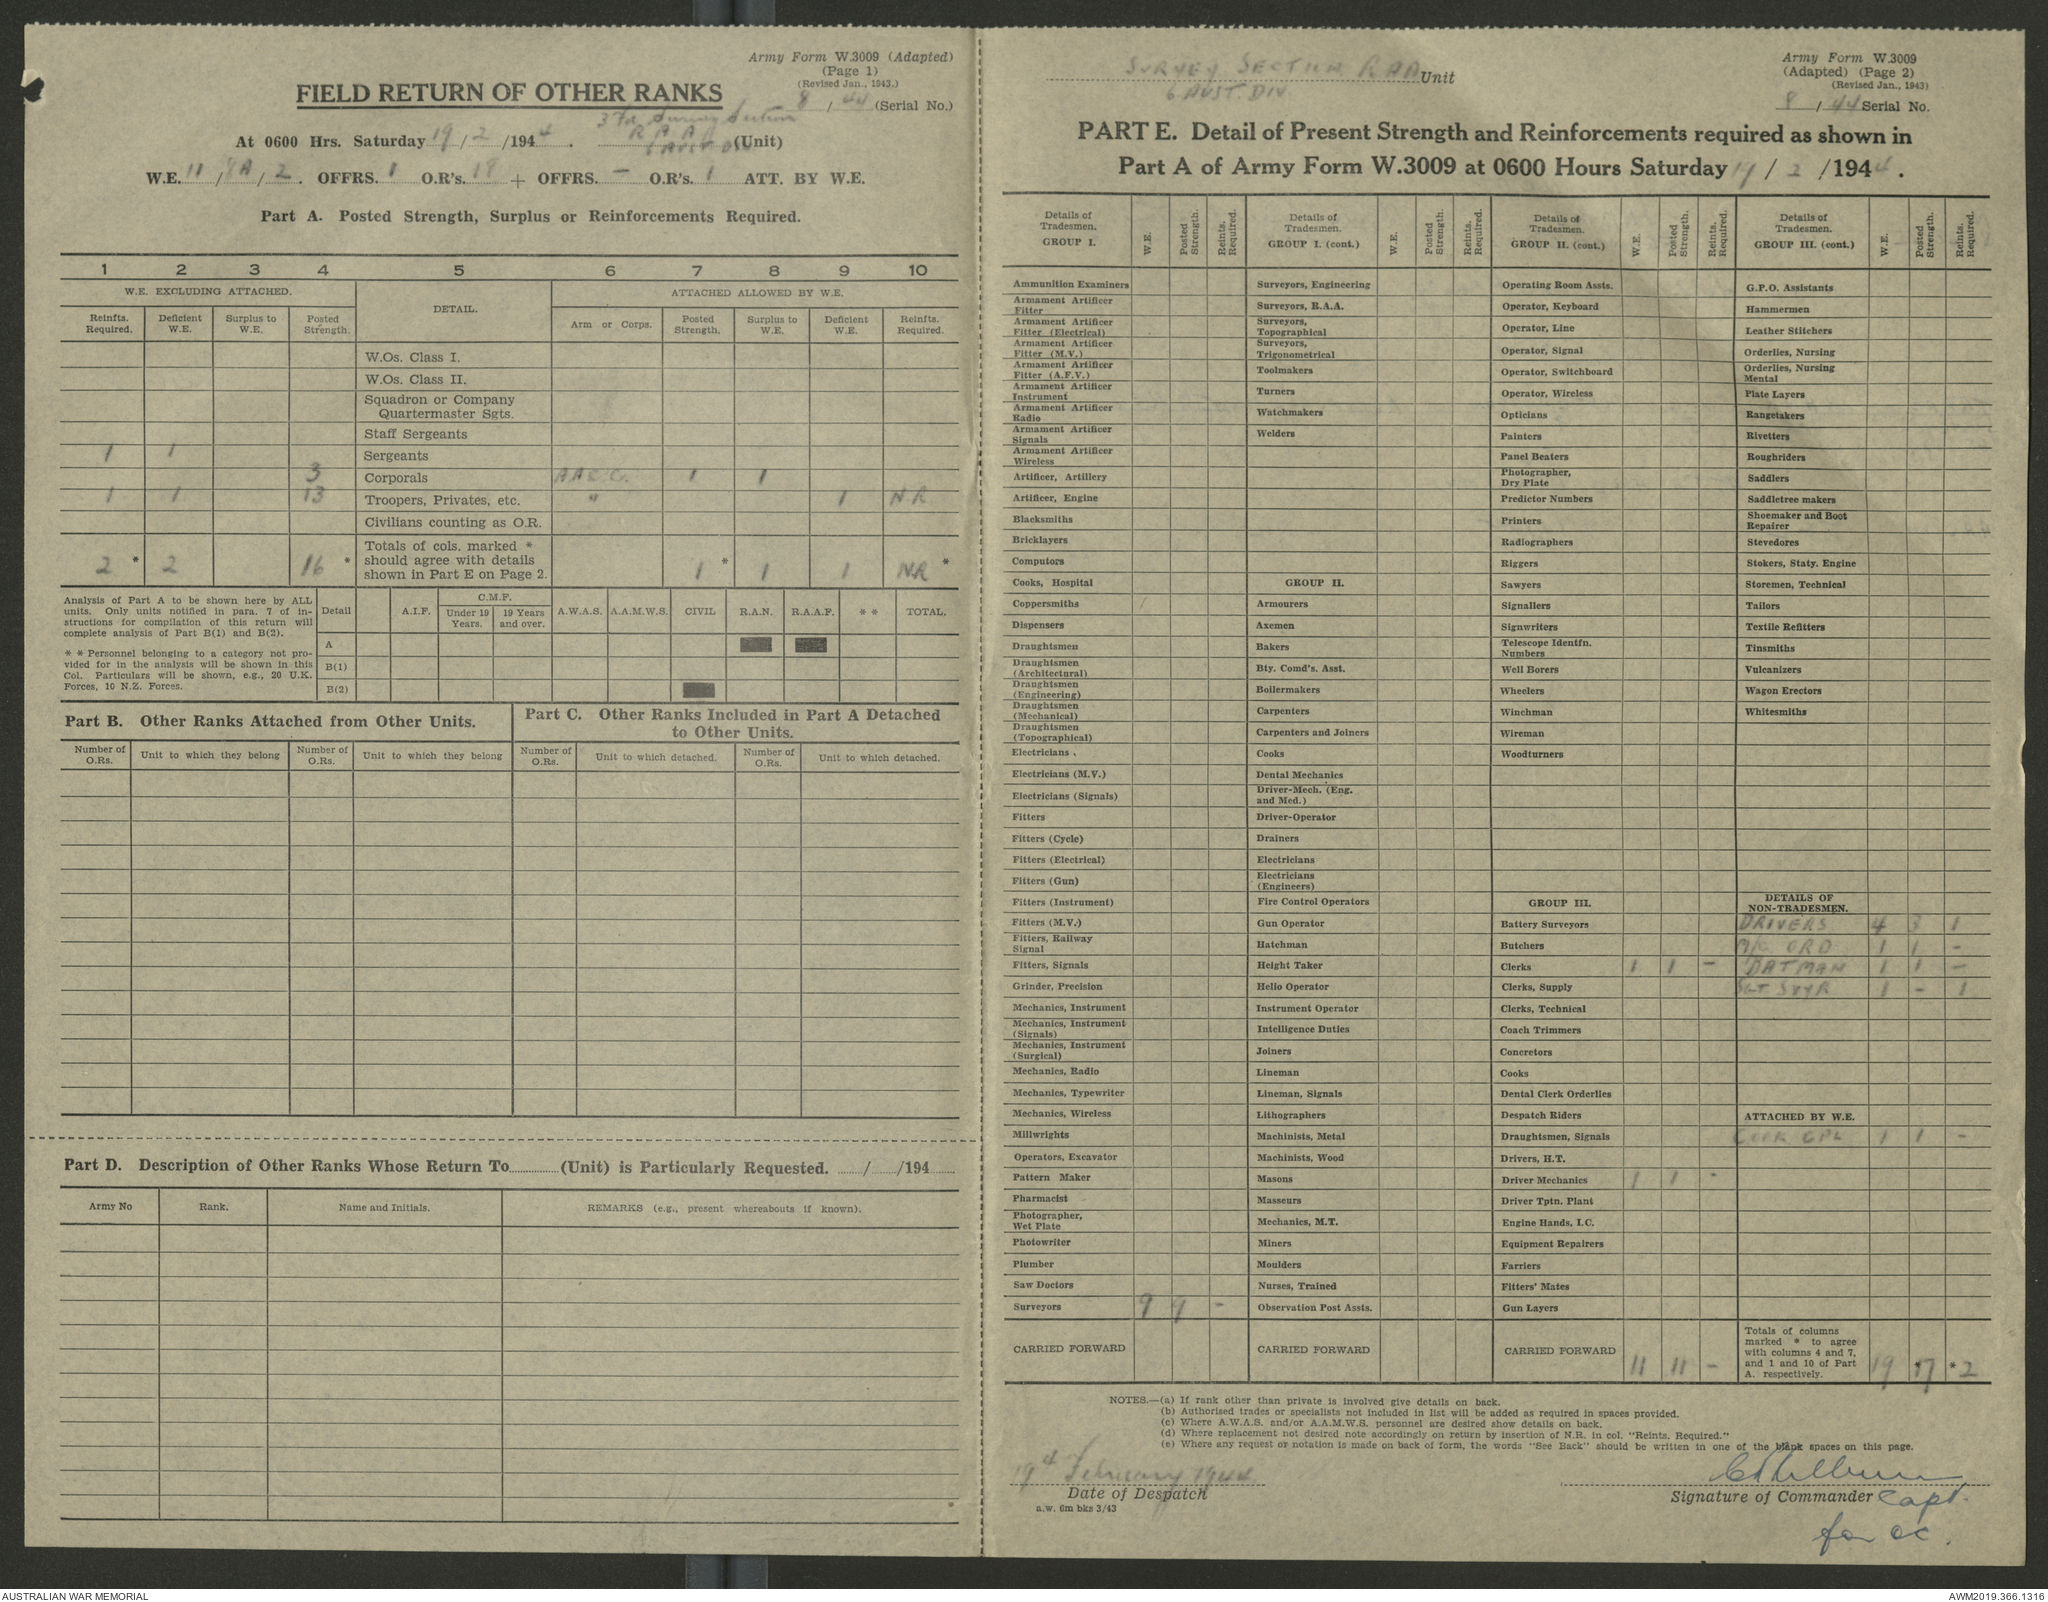 Army Form W.3009 (Adapted)
(Page 1)
(Revised Jan., 1943.)
FIELD RETURN OF OTHER RANKS
8 / 44 (Serial No.)
3 Fd. Survey Section
At 0600 Hrs. Saturday 19 / 2 / 1944 . R A A (Unit)
6 AUST DIV
W.E. 11 / 8A / 2 . OFFRS. 1 O.R's. 18 + OFFRS. – O.R's. 1 ATT. BY W.E.
Part A. Posted Strength, Surplus or Reinforcements Required.
1 2 3 4 5 6 7 8 9 10
W.E. EXCLUDING ATTACHED. DETAIL. ATTACHED ALLOWED BY W.E.
Reinfts. Required. Deficient W.E. Surplus to W.E. Posted Strength. Arm or Corps. Posted Strength. Surplus to W.E. Deficient W.E. Reinfts. Required.
W.Os. Class I.
W.Os. Class II.
Squadron or Company
Quartermaster Sgts.
Staff Sergeants
1 1 Sergeants
3 Corporals A.A.C.C. 1 1
1 1 13 Troopers, Privates, etc. " 1 N R
Civilians counting as O.R.
Totals of cols. marked *
should agree with details
shown in Part E on Page 2.
2 * 2 16 * 1 * 1 1 NR *
Analysis of Part A to be shown here by ALL
units. Only units notified in para. 7 of in-
structions for compilation of this return will
complete analysis of Part B(1) and B(2).
* * Personnel belonging to a category not pro-
vided for in the analysis will be shown in this
Col. Particulars will be shown, e.g., 20 U.K.
Forces, 10 N.Z. Forces.
Detail A.I.F. C.M.F. Under 19 Years. 19 Years and over. A.W.A.S. A.A.M.W.S. CIVIL R.A.N. R.A.A.F. * * TOTAL.
A
B(1)
B(2)
Part B. Other Ranks Attached from Other Units.
Part C. Other Ranks Included in Part A Detached
to Other Units.
Number of O.Rs. Unit to which they belong Number of O.Rs. Unit to which they belong Number of O.Rs. Unit to which detached. Number of O.Rs. Unit to which detached.
Part D. Description of Other Ranks Whose Return To (Unit) is Particularly Requested. / /194
Army No Rank. Name and Initials. REMARKS (e.g., present whereabouts if known).
SURVEY SECTION RAA Unit
6 AUST. DIV.
Army Form W.3009
(Adapted) (Page 2)
(Revised Jan., 1943)
8 / 44 Serial No.
PART E. Detail of Present Strength and Reinforcements required as shown in
Part A of Army Form W.3009 at 0600 Hours Saturday 19 / 2 / 1944 .
Details of Tradesmen. GROUP I. W.E. Posted Strength. Reints. Required.
Ammunition Examiners
Armament Artificer Fitter
Armament Artificer Fitter (Electrical)
Armament Artificer Fitter (M.V.)
Armament Artificer Fitter (A.F.V.)
Armament Artificer Instrument
Armament Artificer Radio
Armament Artificer Signals
Armament Artificer Wireless
Artificer, Artillery
Artificer, Engine
Blacksmiths
Bricklayers
Computors
Cooks, Hospital
Coppersmiths
Dispensers
Draughtsmen
Draughtsmen (Architectural)
Draughtsmen (Engineering)
Draughtsmen (Mechanical)
Draughtsmen (Topographical)
Electricians
Electricians (M.V.)
Electricians (Signals)
Fitters
Fitters (Cycle)
Fitters (Electrical)
Fitters (Gun)
Fitters (Instrument)
Fitters (M.V.)
Fitters, Railway Signal
Fitters, Signals
Grinder, Precision
Mechanics, Instrument
Mechanics, Instrument (Signals)
Mechanics, Instrument (Surgical)
Mechanics, Radio
Mechanics, Typewriter
Mechanics, Wireless
Millwrights
Operators, Excavator
Pattern Maker
Pharmacist
Photographer, Wet Plate
Photowriter
Plumber
Saw Doctors
Surveyors 9 9 –
CARRIED FORWARD
Details of Tradesmen. GROUP I. (cont.) W.E. Posted Strength. Reints. Required.
Surveyors, Engineering
Surveyors, R.A.A.
Surveyors, Topographical
Surveyors, Trigonometrical
Toolmakers
Turners
Watchmakers
Welders
GROUP II.
Armourers
Axemen
Bakers
Bty. Comd's. Asst.
Boilermakers
Carpenters
Carpenters and Joiners
Cooks
Dental Mechanics
Driver-Mech. (Eng. and Med.)
Driver-Operator
Drainers
Electricians
Electricians (Engineers)
Fire Control Operators
Gun Operator
Hatchman
Height Taker
Helio Operator
Instrument Operator
Intelligence Duties
Joiners
Lineman
Lineman, Signals
Lithographers
Machinists, Metal
Machinists, Wood
Masons
Masseurs
Mechanics, M.T.
Miners
Moulders
Nurses, Trained
Observation Post Assts.
CARRIED FORWARD
Details of Tradesmen. GROUP II. (cont.) W.E. Posted Strength. Reints. Required.
Operating Room Assts.
Operator, Keyboard
Operator, Line
Operator, Signal
Operator, Switchboard
Operator, Wireless
Opticians
Painters
Panel Beaters
Photographer, Dry Plate
Predictor Numbers
Printers
Radiographers
Riggers
Sawyers
Signallers
Signwriters
Telescope Identfn. Numbers
Well Borers
Wheelers
Winchman
Wireman
Woodturners
GROUP III.
Battery Surveyors
Butchers
Clerks 1 1 –
Clerks, Supply
Clerks, Technical
Coach Trimmers
Concretors
Cooks
Dental Clerk Orderlies
Despatch Riders
Draughtsmen, Signals
Drivers, H.T.
Driver Mechanics 1 1 –
Driver Tptn. Plant
Engine Hands, I.C.
Equipment Repairers
Farriers
Fitters' Mates
Gun Layers
CARRIED FORWARD 11 11 –
Details of Tradesmen. GROUP III. (cont.) W.E. Posted Strength. Reints. Required.
G.P.O. Assistants
Hammermen
Leather Stitchers
Orderlies, Nursing
Orderlies, Nursing Mental
Plate Layers
Rangetakers
Rivetters
Roughriders
Saddlers
Saddletree makers
Shoemaker and Boot Repairer
Stevedores
Stokers, Staty. Engine
Storemen, Technical
Tailors
Textile Refitters
Tinsmiths
Vulcanizers
Wagon Erectors
Whitesmiths
DETAILS OF NON-TRADESMEN.
DRIVERS 4 3 1
M/C ORD 1 1 –
BATMAN 1 1 –
SGT SVYR 1 – 1
ATTACHED BY W.E.
COOK CPL 1 1 –
Totals of columns
marked * to agree
with columns 4 and 7,
and 1 and 10 of Part
A. respectively. 19 *17 *2
NOTES.—(a) If rank other than private is involved give details on back.
(b) Authorised trades or specialists not included in list will be added as required in spaces provided.
(c) Where A.W.A.S. and/or A.A.M.W.S. personnel are desired show details on back.
(d) Where replacement not desired note accordingly on return by insertion of N.R. in col. "Reints. Required."
(e) Where any request or notation is made on back of form, the words "See Back" should be written in one of the blank spaces on this page.
19th February 1944
Date of Despatch
a.w. 6m bks 3/43
Signature of Commander Capt.
for OC.
AUSTRALIAN WAR MEMORIAL
AWM2019.366.1316